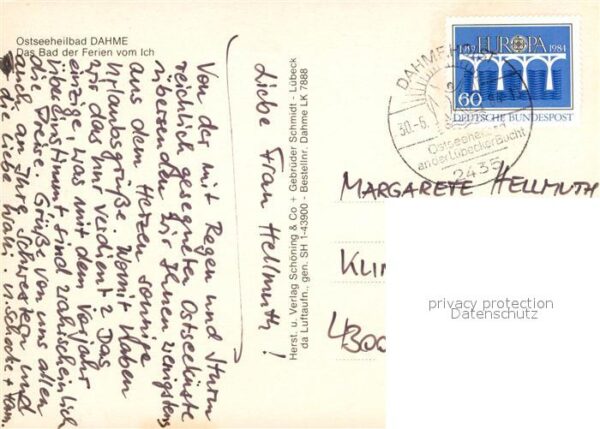 Ostseeheilbad DAHME
Das Bad der Ferien vom Ich
Liebe Frau Hellmuth!
Von der mit Regen und Sturm
reichlich gesegneten Ostseeküste
übersenden wir Ihnen wenigstens
aus dem Herzen sonnige
Urlaubsgrüße. Womit haben
wir das nur verdient? Das
einzige, was mit dem Vorjahr
übereinstimmt sind wahrscheinlich
die Preise. Grüße von uns allen
auch an Ihre Schwestern und
die liebe
Herst. u. Verlag Schöning & Co + Gebrüder Schmidt - Lübeck
da Luftaufn., gen. SH 1-43900 - Bestellnr. Dahme LK 7888
EUROPA
1984
60
DEUTSCHE BUNDESPOST
DAHME, HOLST
30.-6.
Ostseeheilbad
an der Lübecker Bucht
2435
MARGARETE HELLMUTH
KLIN
4300
privacy protection
Datenschutz